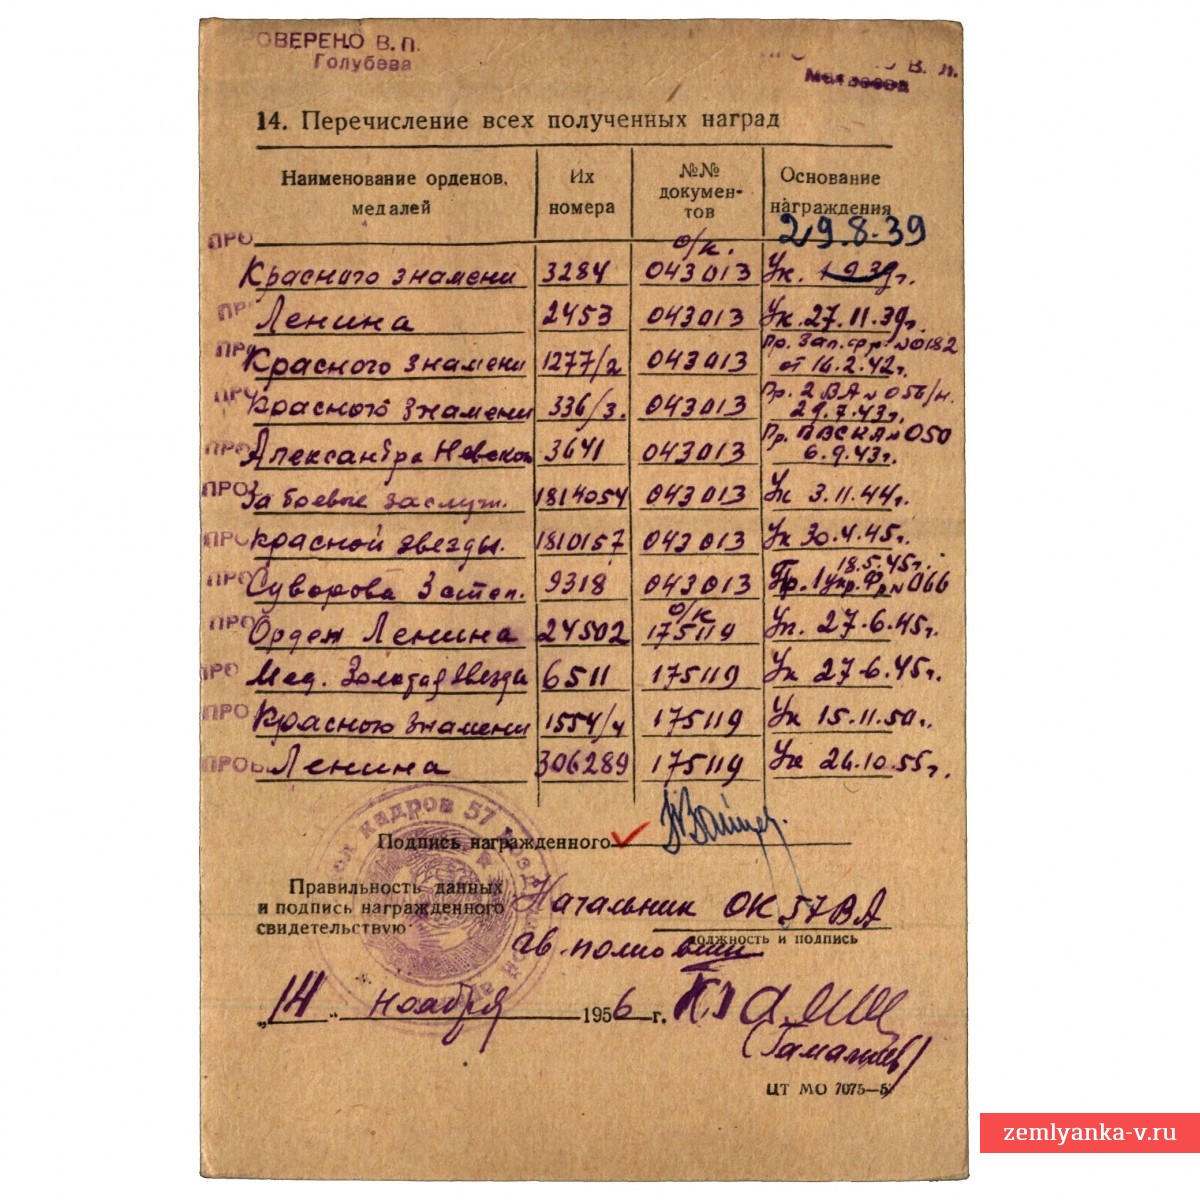 ОВЕРЕНО В. П.
Голубева
В. П.
14. Перечисление всех полученных наград
Наименование орденов, медалей | Их номера | №№ докумен-тов | Основание награждения
29.8.39
ПРО
о/к.
Красного знамени 3284 043013 Ук. 1939г.
ПРО Ленина 2453 043013 Ук. 27.11.39г.
ПРО Красного знамени 1277/2 043013 Пр. Зап. фр. №0182 от 16.2.42г.
ПРО Красного знамени 336/3. 043013 Пр. 2 ВА № 056/н. 29.7.43г.
ПРО Александра Невского 3641 043013 Пр. ВВСКА №050 6.9.43г.
ПРО За боевые заслуги. 1814054 043013 Ук 3.11.44г.
ПРО Красной звезды. 1810157 043013 Ук 30.4.45г.
ПРО Суворова 3 степ. 9318 043013 Пр. 1 Укр. Фр № 066 18.5.45г.
о/к
ПРОВ Орден Ленина 24502 175119 Ук. 27.6.45г.
ПРО Мед. Золотая звезда 6511 175119 Ук 27.6.45г.
ПРО Красного знамени 1554/4 175119 Ук 15.11.50г.
ПРОВ Ленина 306289 175119 Ук 26.10.55г.
Подпись награжденного
Правильность данных
и подпись награжденного
свидетельствую:
Начальник ОК 57ВА
должность и подпись
гв. полковник
„14“ ноября 1956 г.
ЦТ МО 7075—5
отдел кадров 57 возд
zemlyanka-v.ru